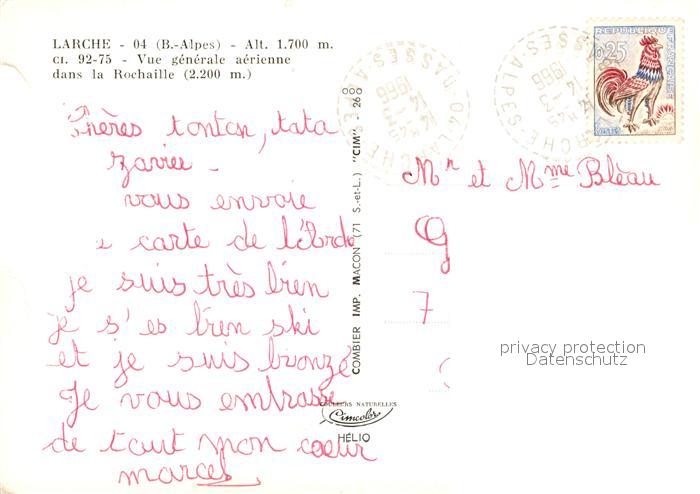 LARCHE - 04 (B.-Alpes) - Alt. 1.700 m.
CI. 92-75 - Vue générale aérienne
dans la Rochaille (2.200 m.)
tonton, tata
vous envoie
carte de
je suis très bien
je s'es bien ski
et je suis bronzé
Je vous embrasse
de tout mon coeur
marcel
COMBIER IMP. MACON (71 S.-et-L.) "CIM" - 260
COULEURS NATURELLES
Cimcolor
HÉLIO
04 LARCHE
BASSES ALPES
14 -3
1966
REPUBLIQUE FRANCAISE
0,25
Mr et Mme Bleau
G
7
privacy protection
Datenschutz